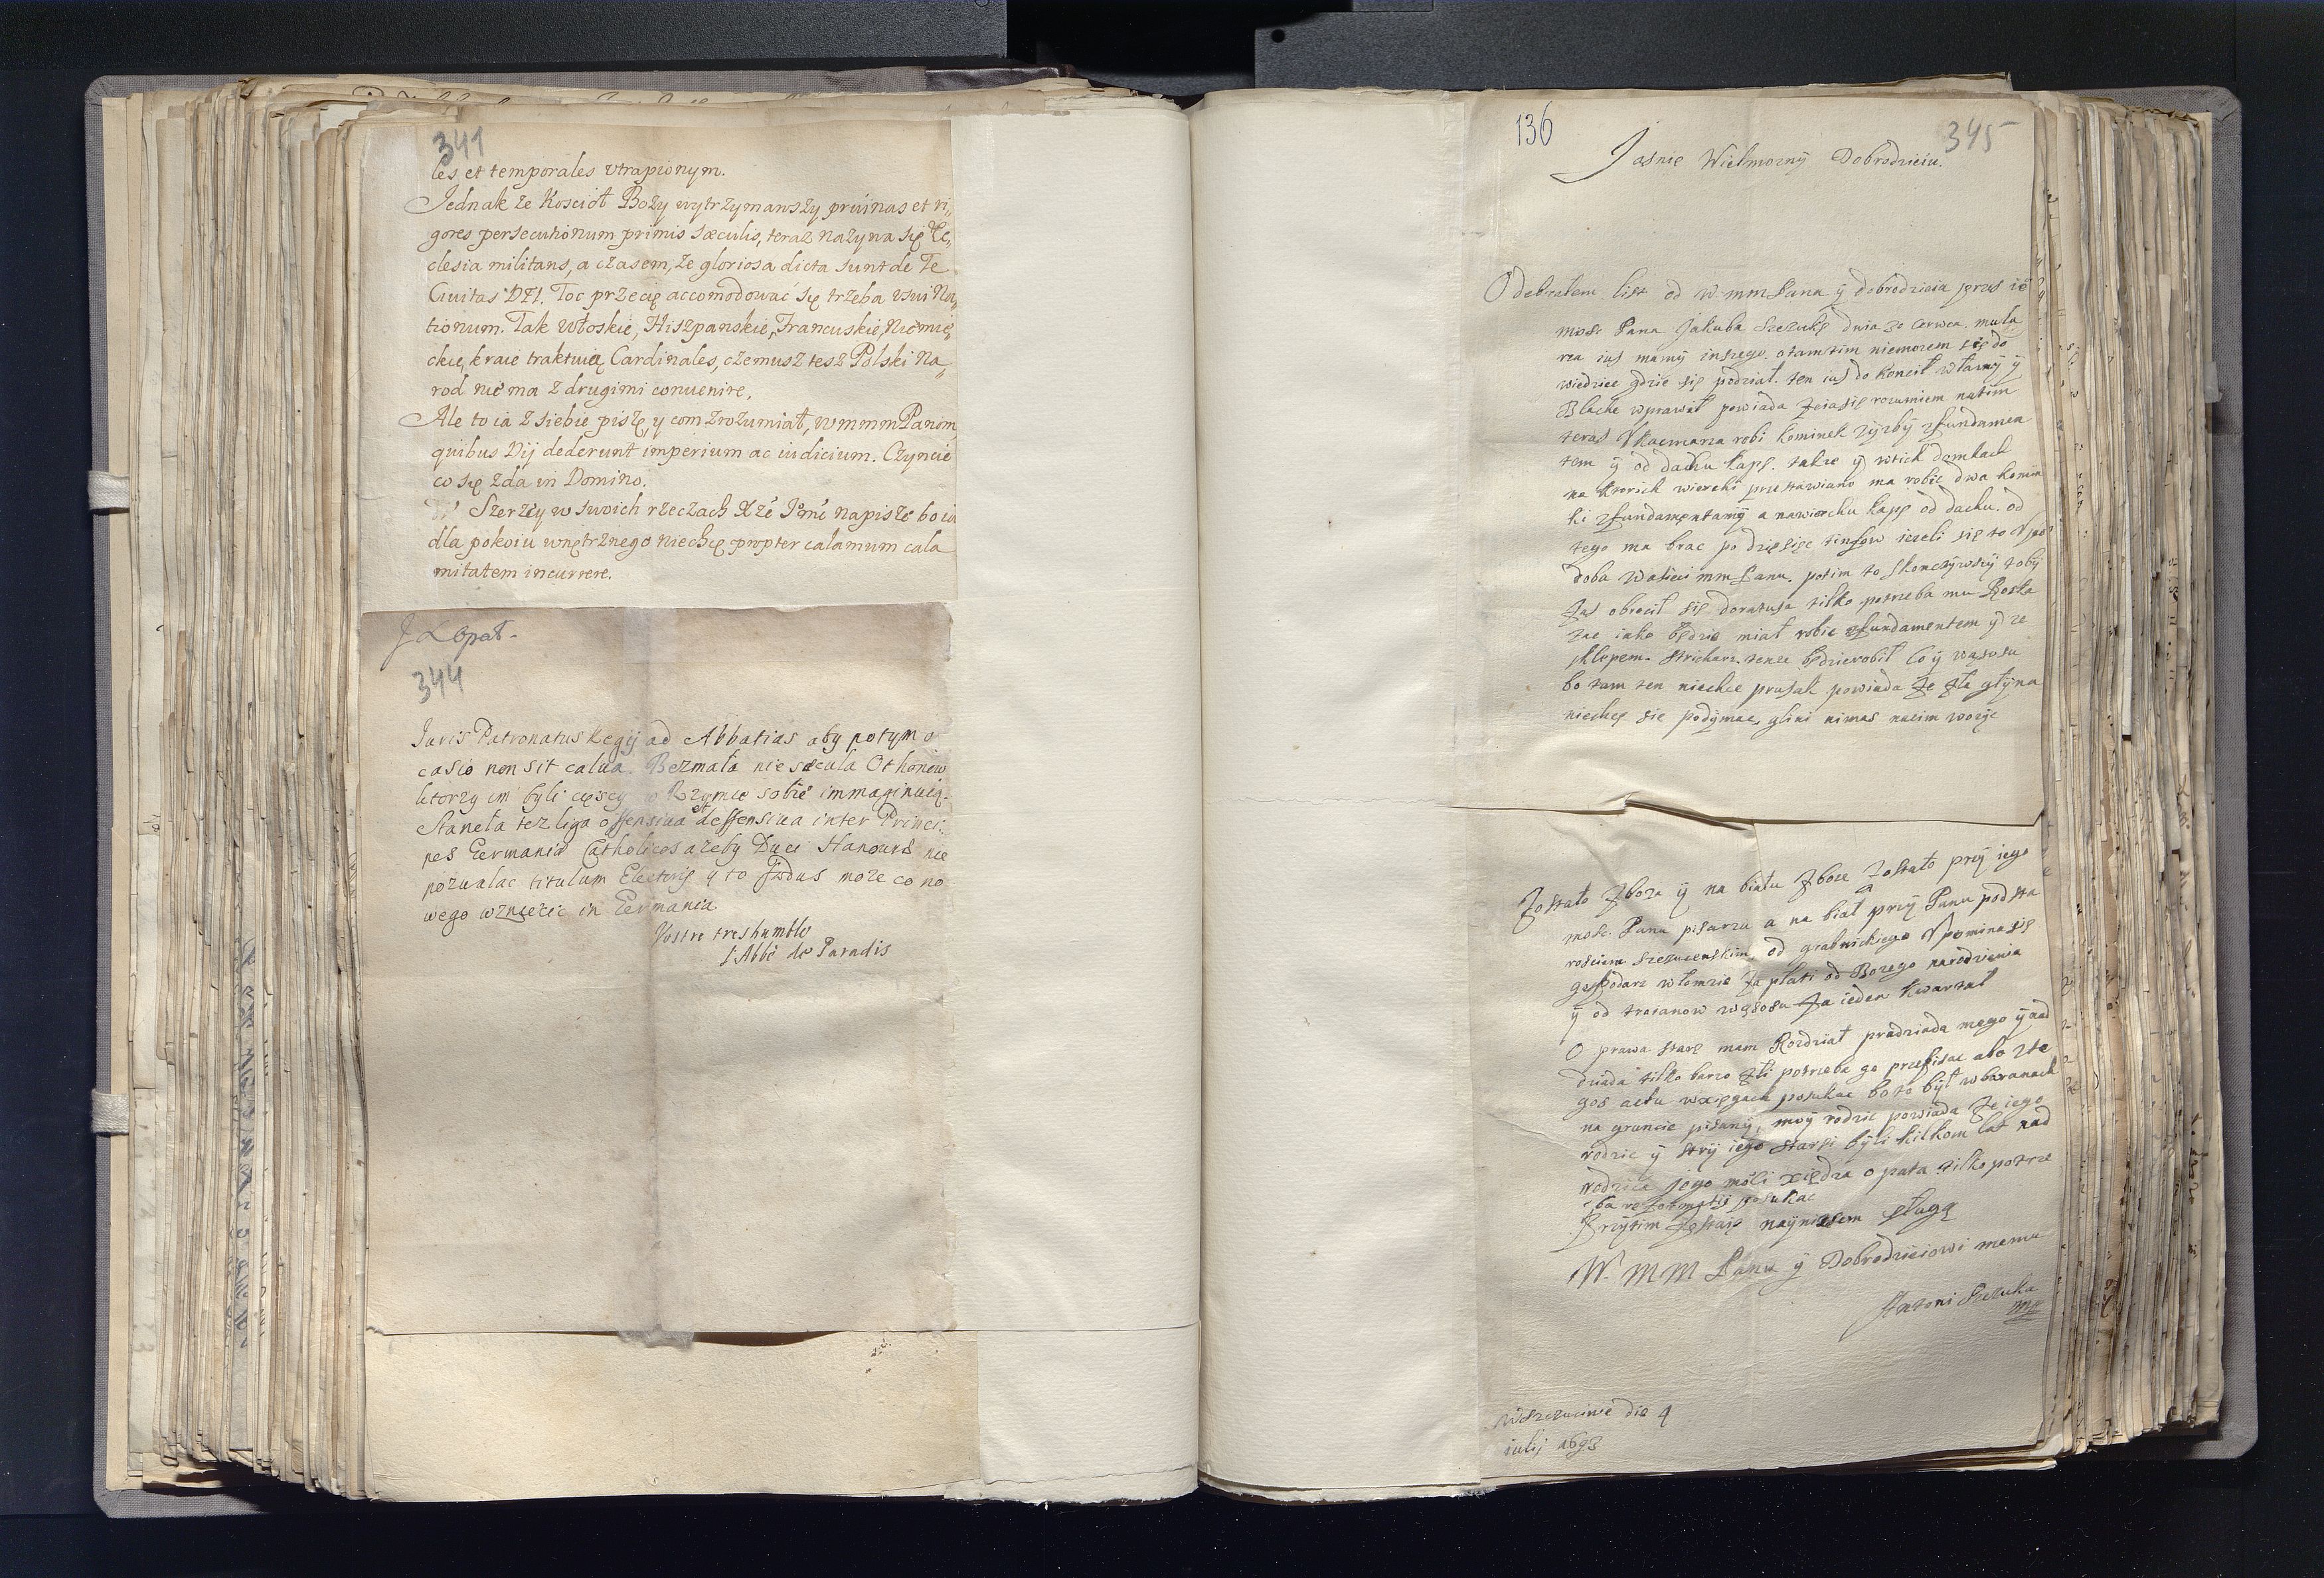 341
les et temporales vtrapionym.
Jednak że Kosciół Boży wytrzymawszy pruinas et ri„
gores persecutionum primis sæculis, teraz nazyna się Ec„
clesia militans, a czasem, że gloriosa dicta sunt de Te
Ciuitas DEI. Toc przecię accomodować się trzeba vsui Na„
tionum. Tak Włoskie, Hiszpanskie, Francuskie, Niemie„
ckie, kraie traktuią Cardinales, czemusz tesz Polski Na„
rod nie ma z drugimi conuenire.
Ale to ia z siebie piszę, y com zrozumiał, wmmm Panom
quibus Dij dederunt imperium ac iudicium. Czyncie
co się zda in Domino.
Szerzey w swoich rzeczach Xże Jmć napisze bo ia
dla pokoiu wnętrznego niechcę propter calamum cala
mitatem incurrere.
J X Opat.
344
Juris Patronatus Regij ad Abbatias aby potym o
casio non sit calua. Bezmała nie sæcula Othonow
ktorzy im byli cięscy w Rzymie sobie immaginuią.
Staneła tez liga offensiua et deffensiua inter Princi„
pes Germaniæ Catholicos azeby Duci Hanouræ nie
pozwalac titulum Electoris y to fædus moze co no
wego wzniecic in Germania.
Vostre tres humble
l'Abbé de Paradis
136
345
Jasnie Wielmozny Dobrodzieiu.
Odebrałem list od W mm Pana ÿ dobrodzieia przes ie
mosc Pana Jakuba Szczukę dnia 30 czerwca. mula
rza ius mamÿ inszego. o tamtim niemozem się do
wiedziec gdzie się podział. ten ius do koncił włamÿ ÿ
Blachę wprawił powiada
teras V kaczmarza robi kominek zfundamen
tem ÿ od dachu kapę. takze ÿ wtich domkach
na ktorich wierchi przestawiano ma robic dwa komin
ki zfundamentamÿ a nawierchu kapę od dachu. od
tego ma brac po dziesięc tinfow iezeli się to Vpo
doba Wasieci mm Panu. potim to skonczÿwsÿ
zas obrocił się doratusa tilko potrzeba mu Roska
zac iako będzie miał robic zfundamentem ÿ ze
sklepem. Strichars tenze będzierobił co ÿ wąsosu
bo tam ten niechce prusak powiada ze zła glÿna
niechcę sie podÿmac, glini nimas nacim wozÿc
Zostało zboza ÿ na białÿ zboze zostało prÿ iego
mosc. Panu pisarzu a na biał prÿÿ Panu podsta
rosciem Szczuczenskim, od grabnickiego Vpomina się
gospodarz włomzie za płati od Bozego narodzienia
ÿ od traianow wąsosu za ieden kwartał
O prawa stare mam Rozdział pradziada mego ÿ nad
dziada tilko barzo zli potrzeba go przepisac abo zte
gos actu wxięgach posukac bo to bÿł wbaranach
na gruncie pisanÿ, moÿ rodzic powiada ze iego
rodzic ÿ strÿ iego starsi bÿli kilkom lat nad
rodzica jego mosci xiędza opata tilko potrze
ba posukac
Prÿtim zostaię naÿnizsem sługą
W. M M Panu ÿ Dobrodzieiowi memu
Antoni Szczuka
mp
Wszczucinie die 4
iulij 1693